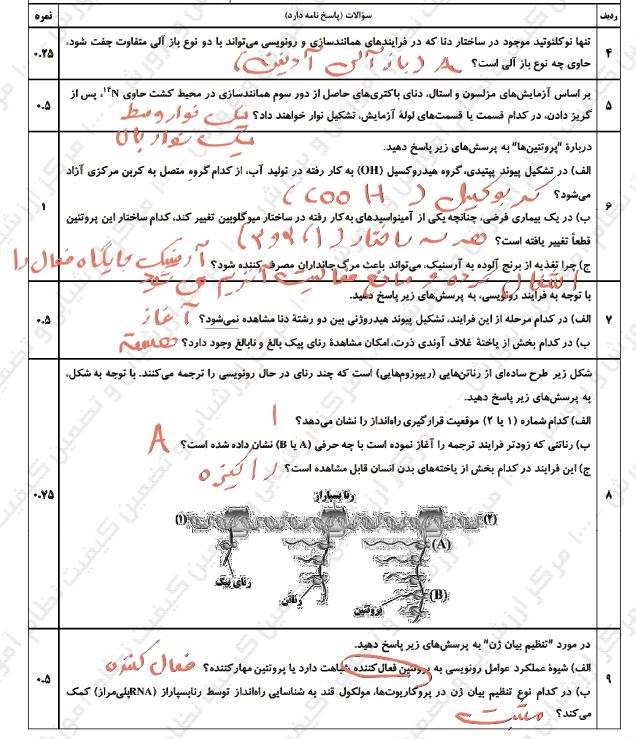 ردیف سؤالات (پاسخ نامه دارد) نمره
۴ تنها نوکلئوتید موجود در ساختار دنا که در فرایندهای همانندسازی و رونویسی می‌تواند با دو نوع باز آلی متفاوت جفت شود، ۰.۲۵
حاوی چه نوع باز آلی است؟ A (باز آلی آدنین)
۵ بر اساس آزمایش‌های مزلسون و استال، دنای باکتری‌های حاصل از دور سوم همانندسازی در محیط کشت حاوی N¹⁴، پس از ۰.۵
گریز دادن، در کدام قسمت یا قسمت‌های لولهٔ آزمایش، تشکیل نوار خواهند داد؟ یک نوار وسط
یک نوار بالا
درباره "پروتئین‌ها" به پرسش‌های زیر پاسخ دهید.
الف) در تشکیل پیوند پپتیدی، گروه هیدروکسیل (OH) به کار رفته در تولید آب، از کدام گروهِ متصل به کربن مرکزی آزاد
۶ می‌شود؟ کربوکسیل (COOH) ۱
ب) در یک بیماری فرضی، چنانچه یکی از آمینواسیدهای به‌کار رفته در ساختار میوگلوبین تغییر کند، کدام ساختار این پروتئین
قطعاً تغییر یافته است؟ هر سه ساختار (۱، ۲ و ۳)
ج) چرا تغذیه از برنج آلوده به آرسنیک، می‌تواند باعث مرگ جانداران مصرف‌کننده شود؟ آرسنیک جایگاه فعال را
اشغال کرده و مانع فعالیت آنزیم می شود
با توجه به فرایند رونویسی، به پرسش‌های زیر پاسخ دهید.
۷ الف) در کدام مرحله از این فرایند، تشکیل پیوند هیدروژنی بین دو رشتهٔ دنا مشاهده نمی‌شود؟ آغاز ۰.۵
ب) در کدام بخش از یاختهٔ غلاف آوندی ذرت، امکان مشاهدهٔ رنای پیک بالغ و نابالغ وجود دارد؟ هسته
شکل زیر طرح ساده‌ای از رناتن‌هایی (ریبوزوم‌هایی) است که چند رنای در حال رونویسی را ترجمه می‌کنند. با توجه به شکل،
به پرسش‌های زیر پاسخ دهید.
الف) کدام شماره (۱ یا ۲) موقعیت قرارگیری راه‌انداز را نشان می‌دهد؟ ۱
ب) رناتنی که زودتر فرایند ترجمه را آغاز نموده است با چه حرفی (A یا B) نشان داده شده است؟ A
ج) این فرایند در کدام بخش از یاخته‌های بدن انسان قابل مشاهده است؟ راکیزه
۸ ۰.۷۵
رنا بسپاراز
(۱) (۲)
(A)
رنای پیک
رناتن
پروتئین
(B)
در مورد "تنظیم بیان ژن" به پرسش‌های زیر پاسخ دهید.
الف) شیوهٔ عملکرد عوامل رونویسی به پروتئین فعال‌کننده شباهت دارد یا پروتئین مهارکننده؟ فعال کننده
۹ ب) در کدام نوع تنظیم بیان ژن در پروکاریوت‌ها، مولکول قند به شناسایی راه‌انداز توسط رنابسپاراز (RNAپلی‌مراز) کمک ۰.۵
می‌کند؟ مثبت